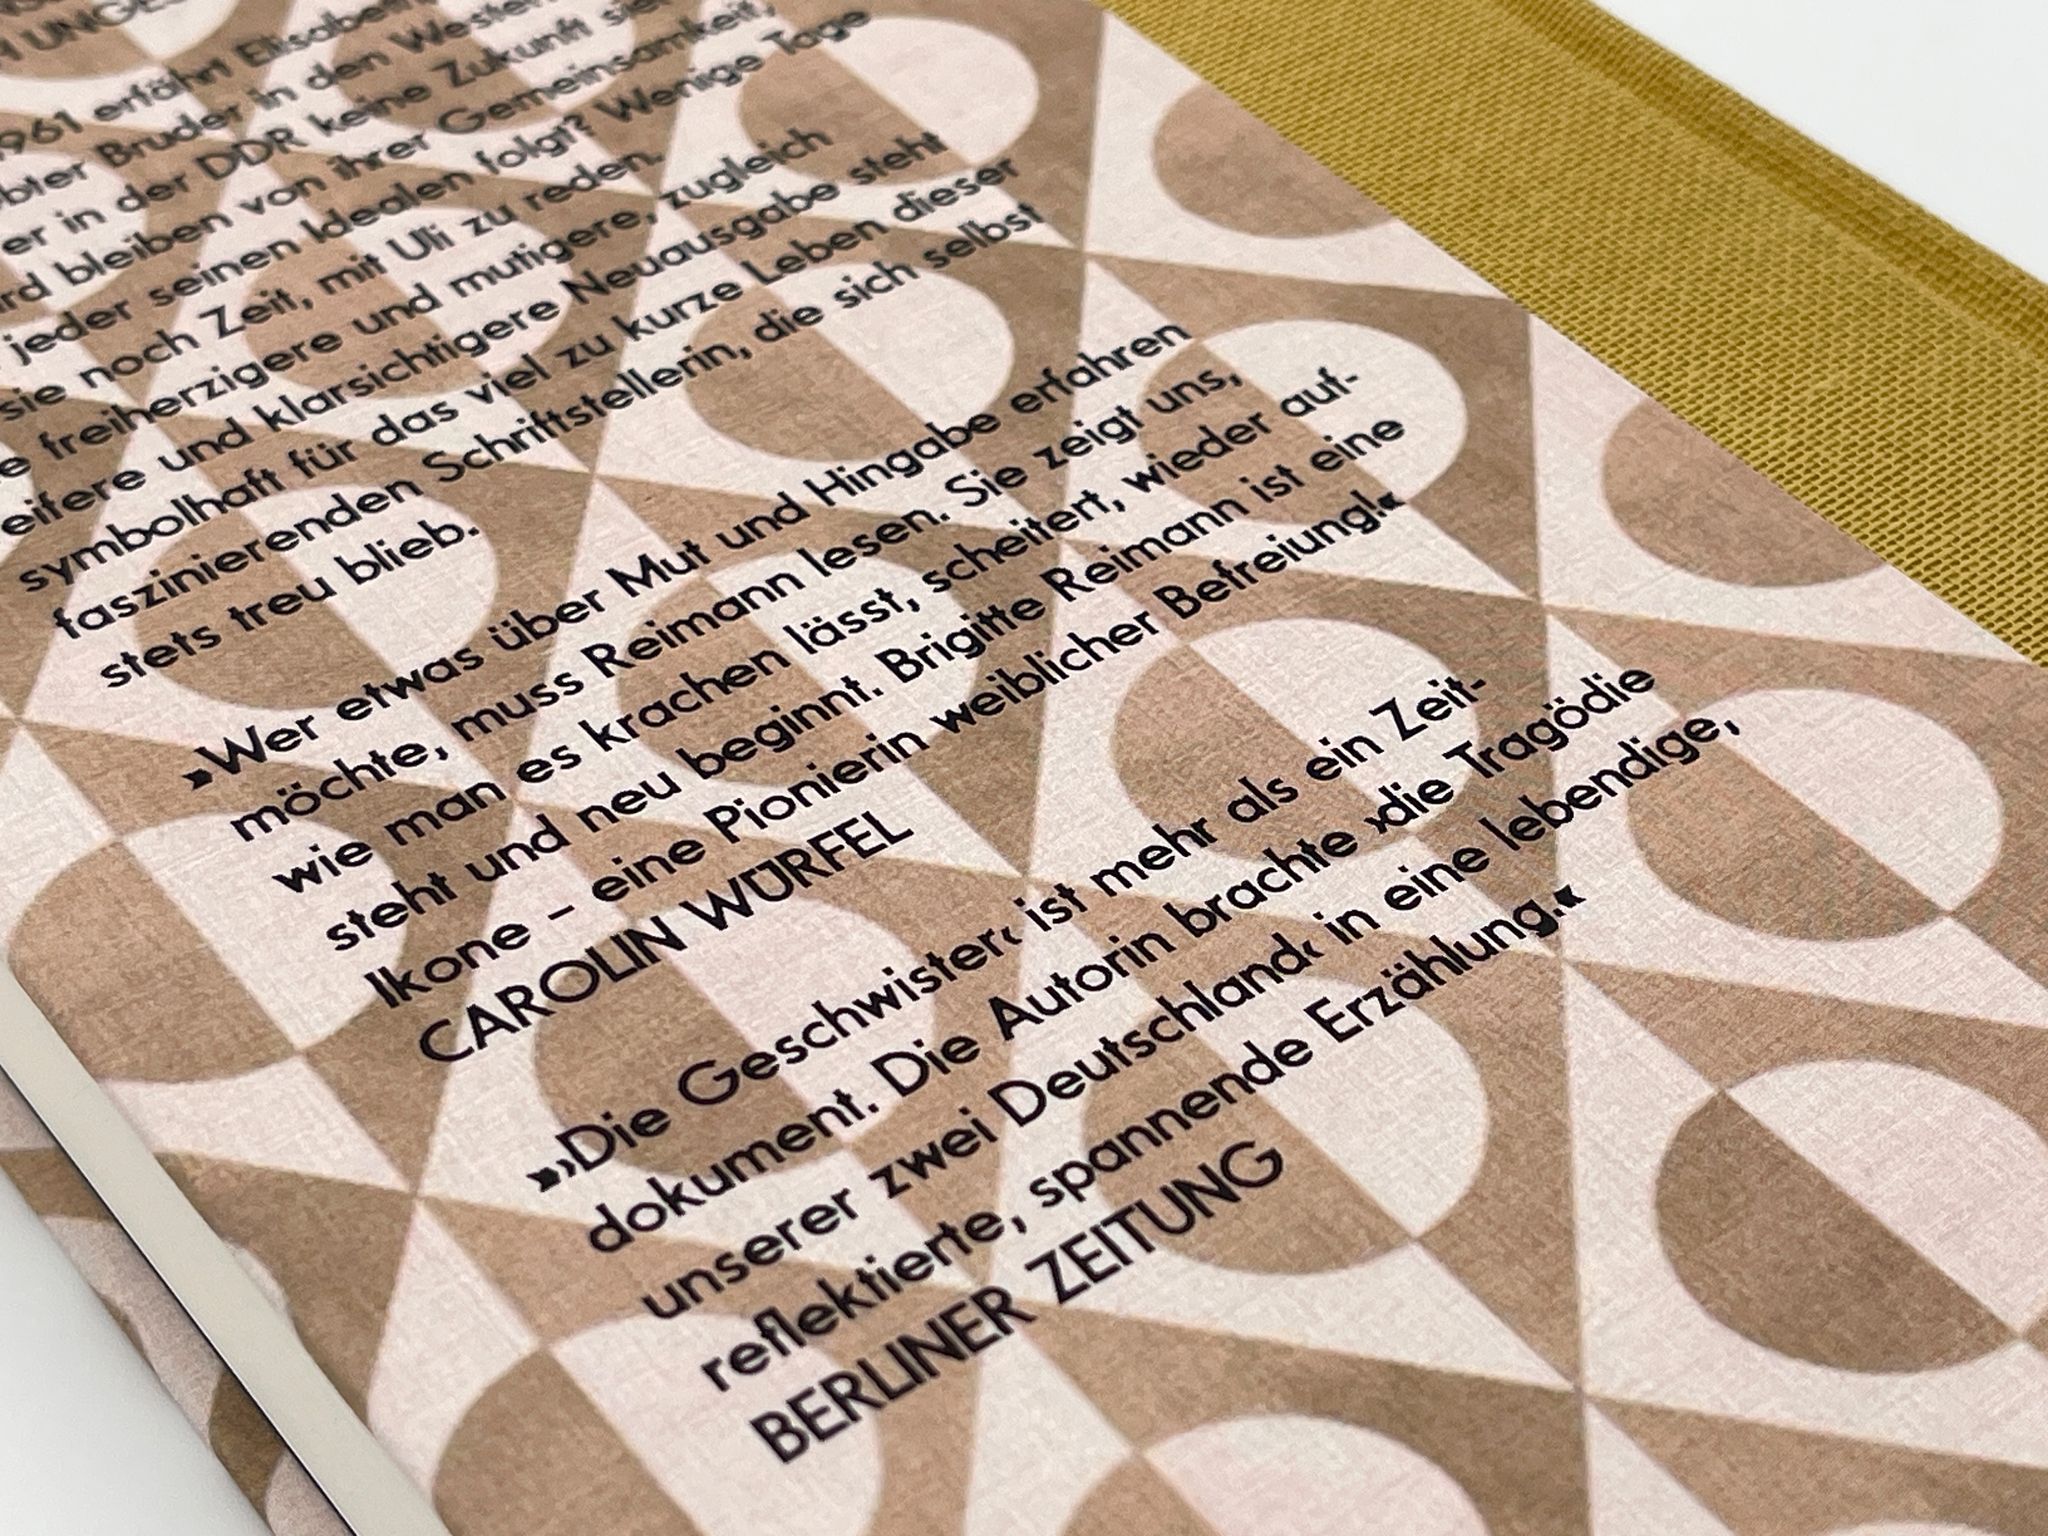 H UNGES
1961 erfährt Elisabeth,
bter Bruder in den Westen
er in der DDR keine Zukunft sie
rd bleiben von ihrer Gemeinsamkeit,
jeder seinen Idealen folgt? Wenige Tage
sie noch Zeit, mit Uli zu reden.
e freiherzigere und mutigere, zugleich
eifere und klarsichtigere Neuausgabe steht
symbolhaft für das viel zu kurze Leben dieser
faszinierenden Schriftstellerin, die sich selbst
stets treu blieb.
»Wer etwas über Mut und Hingabe erfahren
möchte, muss Reimann lesen. Sie zeigt uns,
wie man es krachen lässt, scheitert, wieder auf-
steht und neu beginnt. Brigitte Reimann ist eine
Ikone – eine Pionierin weiblicher Befreiung!«
CAROLIN WÜRFEL
»›Die Geschwister‹ ist mehr als ein Zeit-
dokument. Die Autorin brachte ›die Tragödie
unserer zwei Deutschland‹ in eine lebendige,
reflektierte, spannende Erzählung.«
BERLINER ZEITUNG